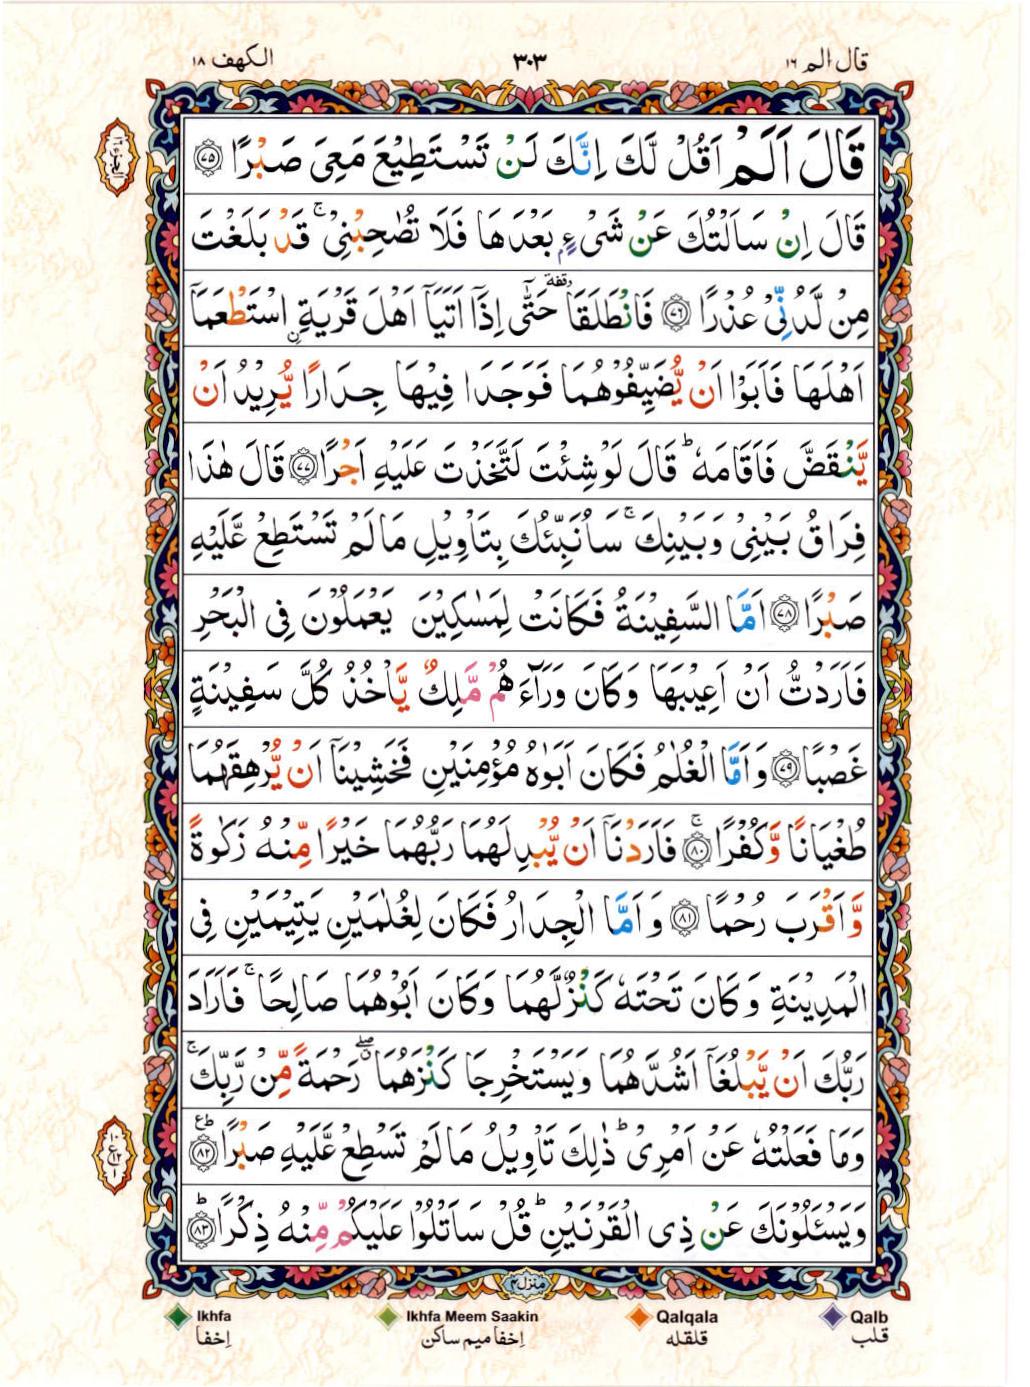 قال الم ١٦
٣٠٣
الكهف ١٨
قَالَ اَلَمْ اَقُلْ لَّكَ اِنَّكَ لَنْ تَسْتَطِيْعَ مَعِيَ صَبْرًا ﴿٧٥﴾
قَالَ اِنْ سَاَلْتُكَ عَنْ شَيْءٍۭ بَعْدَهَا فَلَا تُصٰحِبْنِيْ ۚ قَدْ بَلَغْتَ
مِنْ لَّدُنِّيْ عُذْرًا ﴿٧٦﴾ فَانْطَلَقَا ۥ وقفة حَتّٰۤى اِذَاۤ اَتَيَاۤ اَهْلَ قَرْيَةِ ۨاسْتَطْعَمَاۤ
اَهْلَهَا فَاَبَوْا اَنْ يُّضَيِّفُوْهُمَا فَوَجَدَا فِيْهَا جِدَارًا يُّرِيْدُ اَنْ
يَّنْقَضَّ فَاَقَامَهٗ ؕ قَالَ لَوْ شِئْتَ لَتَّخَذْتَ عَلَيْهِ اَجْرًا ﴿٧٧﴾ قَالَ هٰذَا
فِرَاقُ بَيْنِيْ وَبَيْنِكَ ۚ سَاُنَبِّئُكَ بِتَاْوِيْلِ مَا لَمْ تَسْتَطِعْ عَّلَيْهِ
صَبْرًا ﴿٧٨﴾ اَمَّا السَّفِيْنَةُ فَكَانَتْ لِمَسٰكِيْنَ يَعْمَلُوْنَ فِي الْبَحْرِ
فَاَرَدْتُّ اَنْ اَعِيْبَهَا وَكَانَ وَرَآءَهُمْ مَّلِكٌ يَّاْخُذُ كُلَّ سَفِيْنَةٍ
غَصْبًا ﴿٧٩﴾ وَاَمَّا الْغُلٰمُ فَكَانَ اَبَوٰهُ مُؤْمِنَيْنِ فَخَشِيْنَاۤ اَنْ يُّرْهِقَهُمَا
طُغْيَانًا وَّكُفْرًا ۚ ﴿٨٠﴾ فَاَرَدْنَاۤ اَنْ يُّبْدِلَهُمَا رَبُّهُمَا خَيْرًا مِّنْهُ زَكٰوةً
وَّاَقْرَبَ رُحْمًا ﴿٨١﴾ وَاَمَّا الْجِدَارُ فَكَانَ لِغُلٰمَيْنِ يَتِيْمَيْنِ فِي
الْمَدِيْنَةِ وَكَانَ تَحْتَهٗ كَنْزٌ لَّهُمَا وَكَانَ اَبُوْهُمَا صَالِحًا ۚ فَاَرَادَ
رَبُّكَ اَنْ يَّبْلُغَاۤ اَشُدَّهُمَا وَيَسْتَخْرِجَا كَنْزَهُمَا ۖ رَحْمَةً مِّنْ رَّبِّكَ ۚ
وَمَا فَعَلْتُهٗ عَنْ اَمْرِيْ ؕ ذٰلِكَ تَاْوِيْلُ مَا لَمْ تَسْطِعْ عَّلَيْهِ صَبْرًا ؕ ﴿٨٢﴾
وَيَسْـَٔلُوْنَكَ عَنْ ذِي الْقَرْنَيْنِ ؕ قُلْ سَاَتْلُوْا عَلَيْكُمْ مِّنْهُ ذِكْرًا ؕ ﴿٨٣﴾
منزل ٤
Ikhfa
Ikhfa Meem Saakin
Qalqala
Qalb
اِخفا
اِخفا میم ساکن
قلقله
قلب